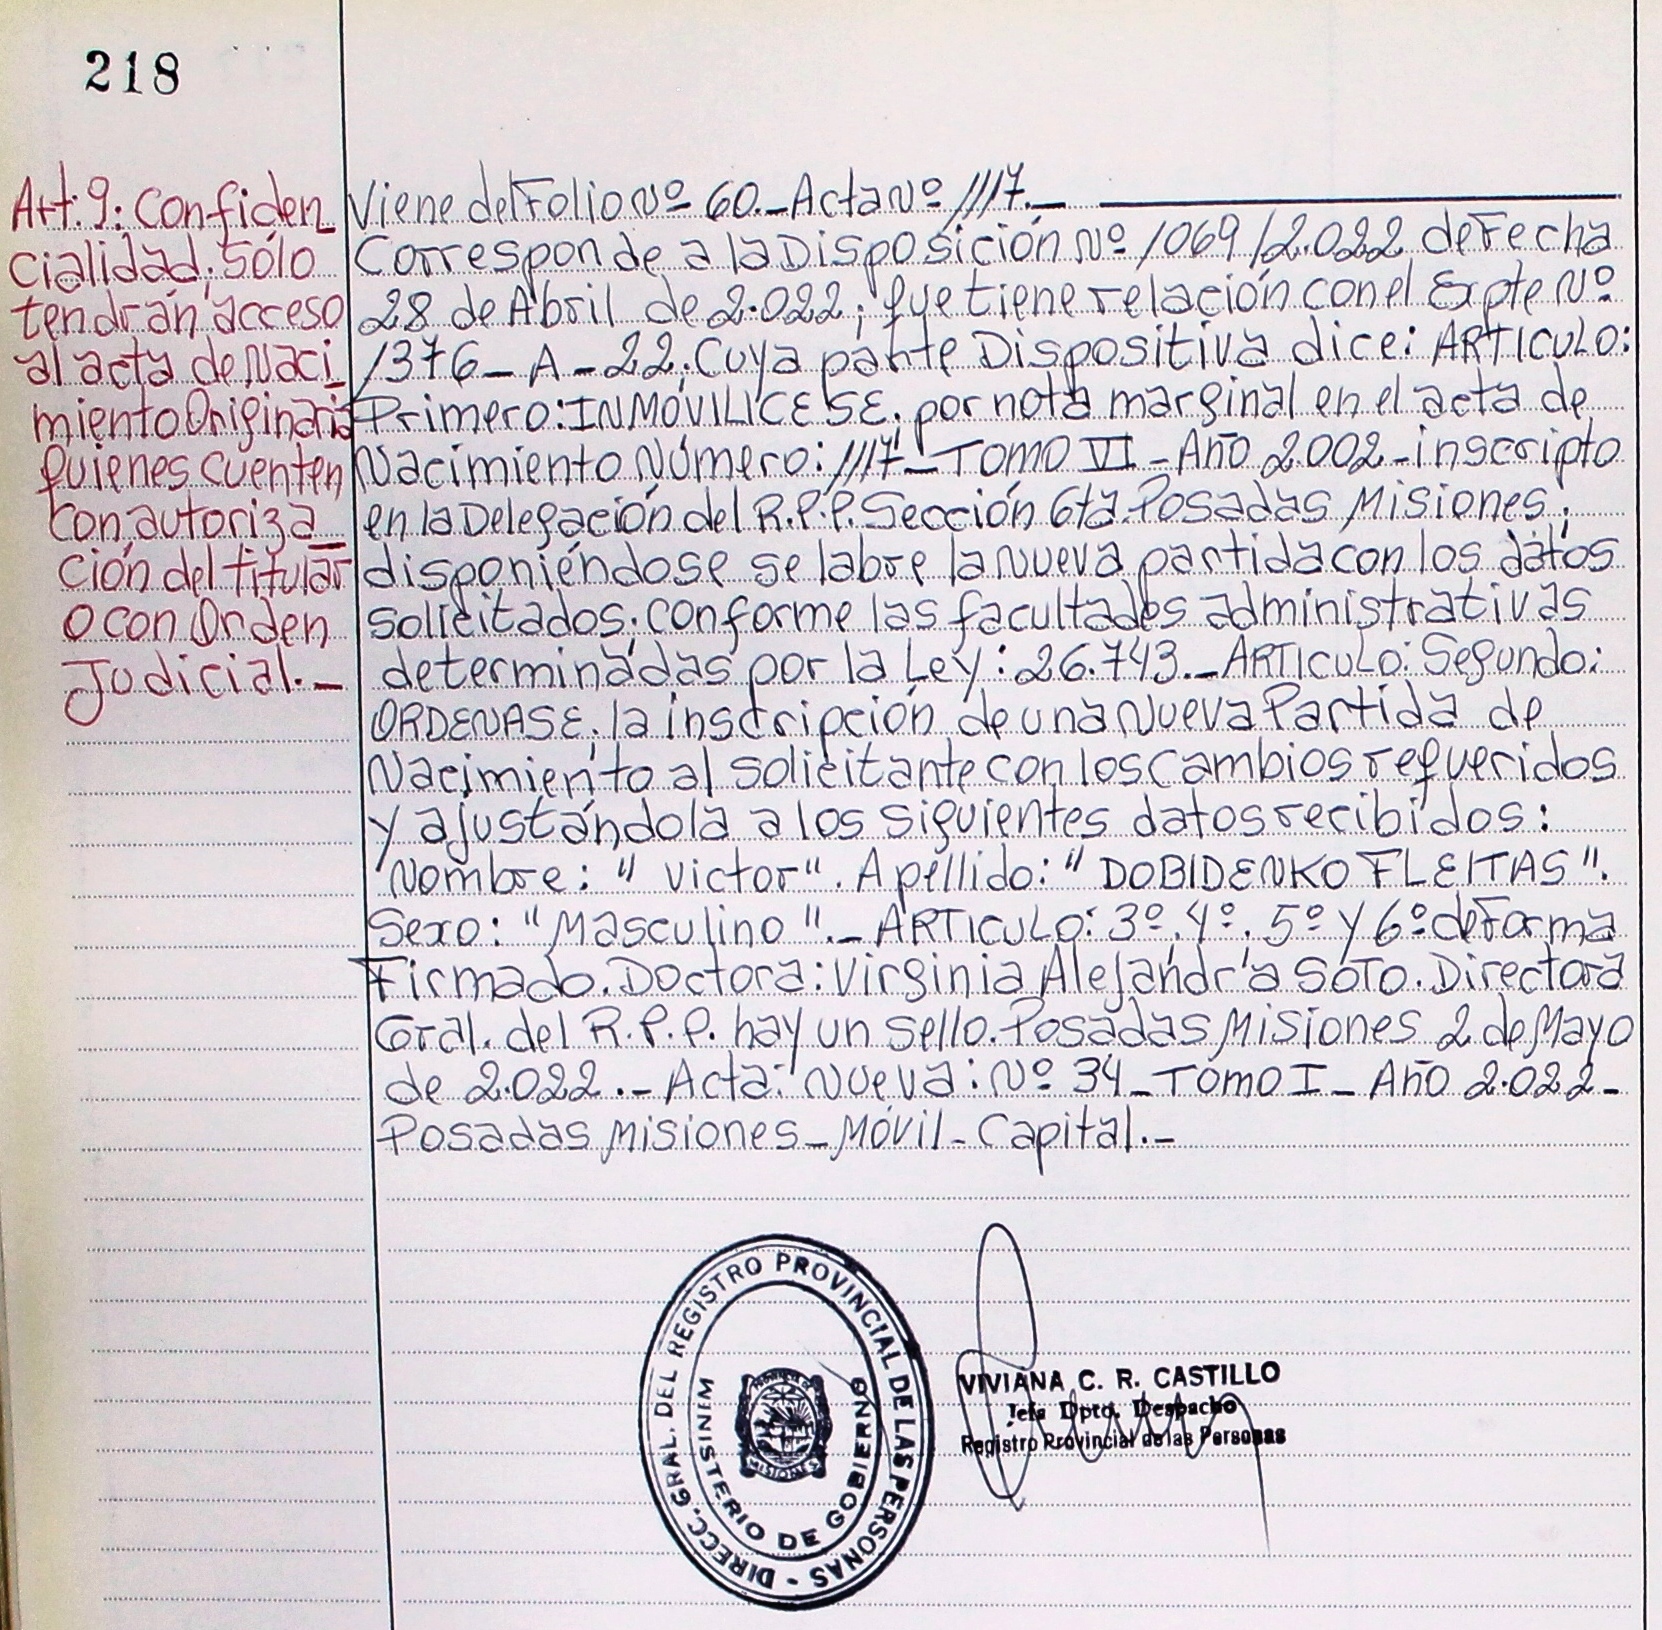 218
Art. 9: Confiden_
cialidad; Sólo
tendrán acceso
al acta de Naci_
miento Originaria
quienes cuenten
con autoriza_
ción del titular
o con Orden
Judicial._
Viene del Folio Nº 60._Acta Nº 1117._
Corresponde a la Disposición Nº 1069/2.022 de Fecha
28 de Abril de 2.022; que tiene relación con el Expte Nº
1376_A_22; Cuya parte Dispositiva dice: ARTICULO:
Primero: INMOVILICESE, por nota marginal en el acta de
Nacimiento Número: 1117_TOMO VI_Año 2002_inscripto
en la Delegación del R.P.P. Sección 6ta. Posadas Misiones;
disponiéndose se labre la Nueva partida con los datos
solicitados; conforme las facultades administrativas
determinadas por la Ley: 26.743._ARTICULO: Segundo:
ORDENASE, la inscripción de una Nueva Partida de
Nacimiento al solicitante con los Cambios requeridos
y ajustándola a los siguientes datos recibidos:
Nombre: "Victor". Apellido: "DOBIDENKO FLEITAS".
Sexo: "Masculino"._ARTICULO: 3º, 4º, 5º y 6º de Forma
Firmado. Doctora: Virginia Alejandra SOTO. Directora
Gral. del R.P.P. hay un sello. Posadas Misiones 2 de Mayo
de 2.022._Acta: Nueva: Nº 34_Tomo I_Año 2.022_
Posadas Misiones_Móvil_Capital._
DIRECC. GRAL. DEL REGISTRO PROVINCIAL DE LAS PERSONAS -
MINISTERIO DE GOBIERNO
MISIONES
VIVIANA C. R. CASTILLO
Jefa Dpto. Despacho
Registro Provincial de las Personas